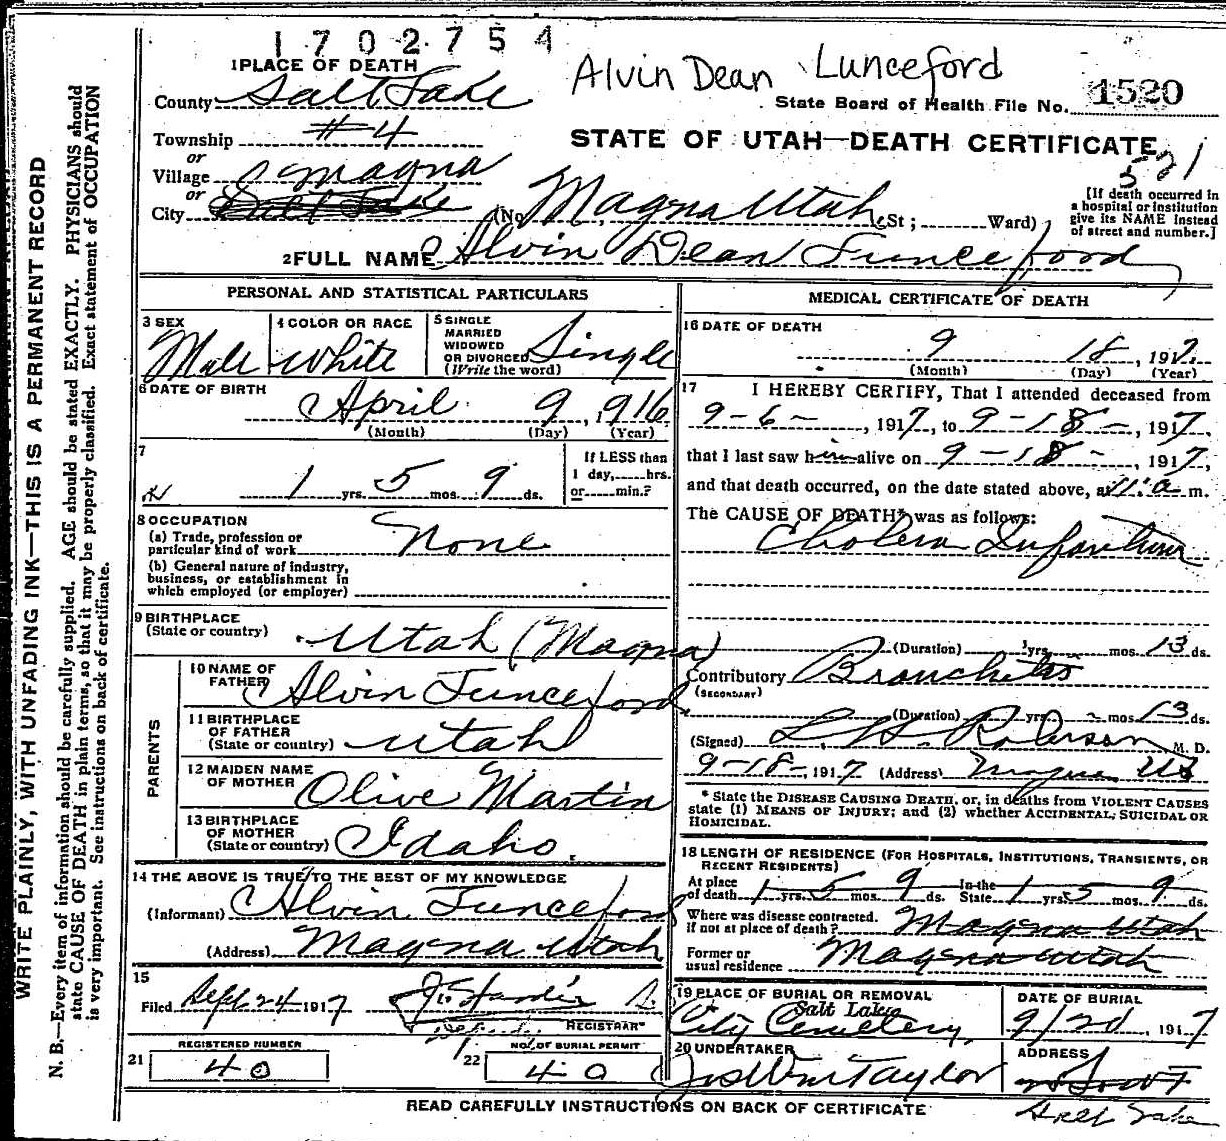 1702754
Alvin Dean Lunceford
1 PLACE OF DEATH
County Salt Lake
State Board of Health File No. 1520
Township #4
STATE OF UTAH—DEATH CERTIFICATE
or
Village Magna
521
or
City Salt Lake (No. Magna Utah St; Ward)
[If death occurred in
a hospital or institution
give its NAME instead
of street and number.]
2 FULL NAME Alvin Dean Lunceford
PERSONAL AND STATISTICAL PARTICULARS
3 SEX
Male
4 COLOR OR RACE
White
5 SINGLE
MARRIED
WIDOWED
OR DIVORCED
(Write the word)
Single
6 DATE OF BIRTH
April 9, 1916
(Month) (Day) (Year)
7
1 yrs. 5 mos. 9 ds.
If LESS than
1 day, hrs.
or min.?
8 OCCUPATION
(a) Trade, profession or
particular kind of work None
(b) General nature of industry,
business, or establishment in
which employed (or employer)
9 BIRTHPLACE
(State or country) Utah (Magna)
PARENTS
10 NAME OF
FATHER Alvin Lunceford
11 BIRTHPLACE
OF FATHER
(State or country) Utah
12 MAIDEN NAME
OF MOTHER Olive Martin
13 BIRTHPLACE
OF MOTHER
(State or country) Idaho.
14 THE ABOVE IS TRUE TO THE BEST OF MY KNOWLEDGE
(Informant) Alvin Lunceford
(Address) Magna Utah
15
Filed Sept 24 1917
REGISTRAR
21 REGISTERED NUMBER
40
22 NO. OF BURIAL PERMIT
40
MEDICAL CERTIFICATE OF DEATH
16 DATE OF DEATH
9 18, 1917.
(Month) (Day) (Year)
17 I HEREBY CERTIFY, That I attended deceased from
9-6-, 1917, to 9-18-, 1917,
that I last saw him alive on 9-18-, 1917,
and that death occurred, on the date stated above, at 11:a m.
The CAUSE OF DEATH* was as follows:
Cholera Infantum
(Duration) yrs. mos. 13 ds.
Contributory Bronchitis
(SECONDARY)
(Duration) yrs. mos. 13 ds.
(Signed) M. D.
9-18-, 1917 (Address) Magna Ut
* State the DISEASE CAUSING DEATH, or, in deaths from VIOLENT CAUSES
state (1) MEANS OF INJURY; and (2) whether ACCIDENTAL, SUICIDAL OR
HOMICIDAL.
18 LENGTH OF RESIDENCE (FOR HOSPITALS, INSTITUTIONS, TRANSIENTS, OR
RECENT RESIDENTS)
At place
of death 1 yrs. 5 mos. 9 ds.
In the
State 1 yrs. 5 mos. 9 ds.
Where was disease contracted.
if not at place of death? Magna Utah
Former or
usual residence Magna Utah
19 PLACE OF BURIAL OR REMOVAL
Salt Lake
City Cemetery,
DATE OF BURIAL
9/20, 1917
20 UNDERTAKER
Jos Wm Taylor
ADDRESS
Salt Lake
READ CAREFULLY INSTRUCTIONS ON BACK OF CERTIFICATE
WRITE PLAINLY, WITH UNFADING INK—THIS IS A PERMANENT RECORD
N. B.—Every item of information should be carefully supplied. AGE should be stated EXACTLY. PHYSICIANS should
state CAUSE OF DEATH in plain terms, so that it may be properly classified. Exact statement of OCCUPATION
is very important. See instructions on back of certificate.